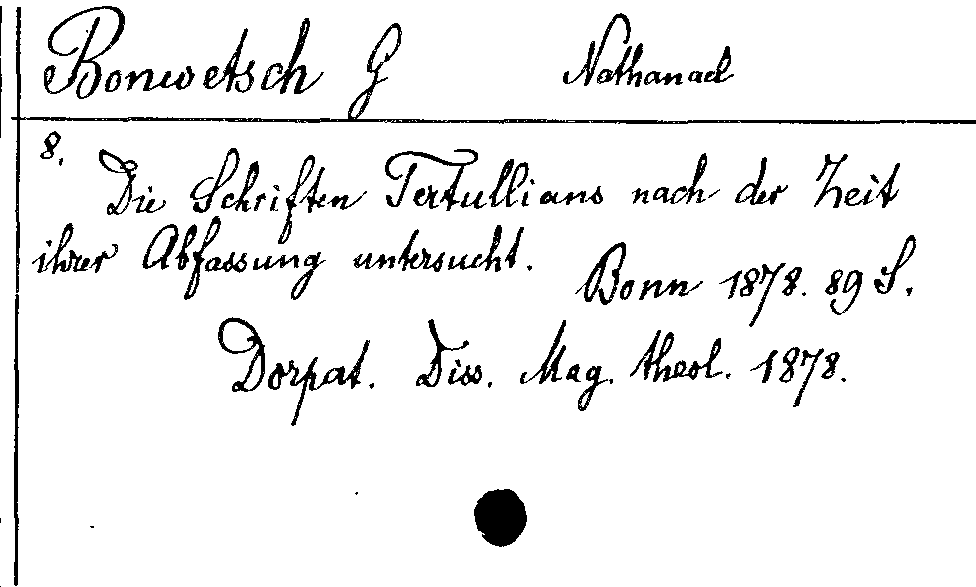 Bonwetsch G Nathanael
8.
Die Schriften Tertullians nach der Zeit
ihrer Abfassung untersucht.
Bonn 1878. 89 S.
Dorpat. Diss. Mag. theol. 1878.